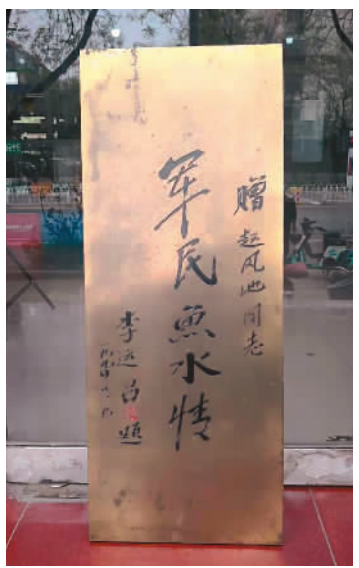 赠 赵风池同志
军民鱼水情
李运昌题